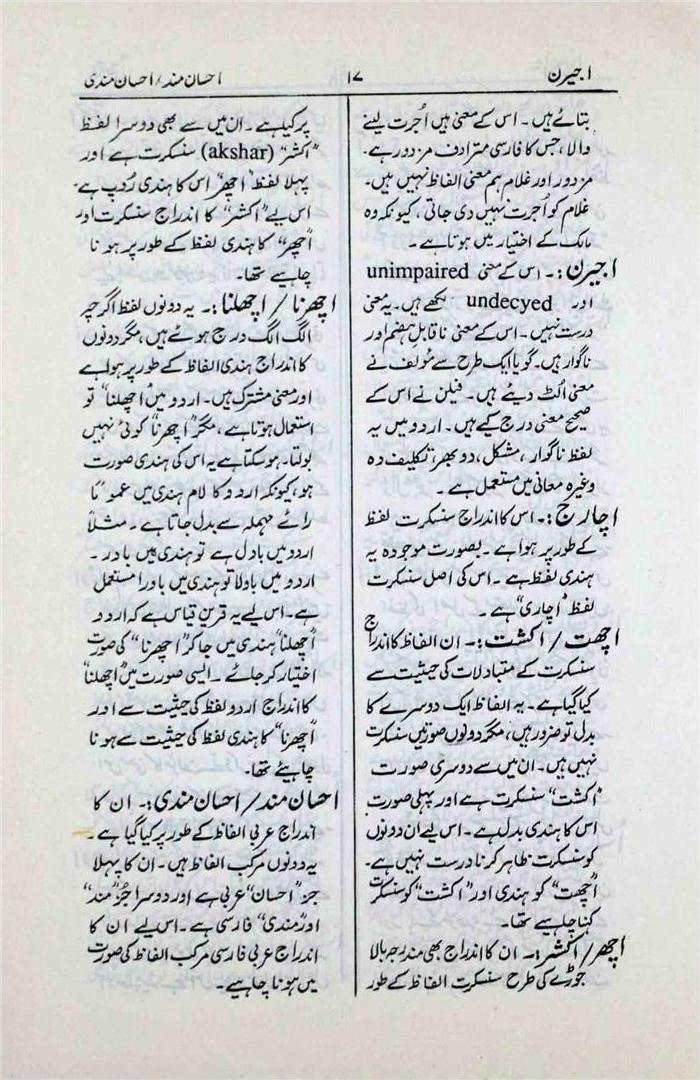 اجیرن
۱۷
احسان مند / احسان مندی
بتائے ہیں۔ اس کے معنی ہیں اُجرت لینے
والا، جس کا فارسی مترادف مزدور ہے۔
مزدور اور غلام ہم معنی الفاظ نہیں ہیں۔
غلام کو اُجرت نہیں دی جاتی، کیونکہ وہ
مالک کے اختیار میں ہوتا ہے۔
اجیرن:۔ اس کے معنی unimpaired
اور undecyed لکھے ہیں۔ یہ معنی
درست نہیں۔ اس کے معنی ناقابلِ ہضم اور
ناگوار ہیں۔ گویا ایک طرح سے مؤلف نے
معنی اُلٹ دیئے ہیں۔ فیلن نے اس کے
صحیح معنی درج کیے ہیں۔ اردو میں یہ
لفظ ناگوار، مشکل، دوبھر، تکلیف دہ
وغیرہ معانی میں مستعمل ہے۔
اچارج:۔ اس کا اندراج سنسکرت لفظ
کے طور پر ہوا ہے۔ بصورت موجودہ یہ
ہندی لفظ ہے۔ اس کی اصل سنسکرت
لفظ "اچاری" ہے۔
اچھت / اکشت:۔ ان الفاظ کا اندراج
سنسکرت کے متبادلات کی حیثیت سے
کیا گیا ہے۔ یہ الفاظ ایک دوسرے کا
بدل تو ضرور ہیں، مگر دونوں صورتیں سنسکرت
نہیں ہیں۔ ان میں سے دوسری صورت
"اکشت" سنسکرت ہے اور پہلی صورت
اس کا ہندی بدل ہے۔ اس لیے ان دونوں
کو سنسکرت ظاہر کرنا درست نہیں ہے۔
"اچھت" کو ہندی اور "اکشت" کو سنسکرت
کہنا چاہیے تھا۔
اچھر / اکشر:۔ ان کا اندراج بھی مندرجہ بالا
جوڑے کی طرح سنسکرت الفاظ کے طور
پر کیا ہے۔ ان میں سے بھی دوسرا لفظ
"اکشر" (akshar) سنسکرت ہے اور
پہلا لفظ "اچھر" اس کا ہندی رُوپ ہے۔
اس لیے "اکشر" کا اندراج سنسکرت اور
"اچھر" کا ہندی لفظ کے طور پر ہونا
چاہیے تھا۔
اچھرنا / اچھلنا:۔ یہ دونوں لفظ اگرچہ
الگ الگ درج ہوئے ہیں، مگر دونوں
کا اندراج ہندی الفاظ کے طور پر ہوا ہے
اور معنی مشترک ہیں۔ اردو میں "اچھلنا" تو
استعمال ہوتا ہے، مگر "اچھرنا" کوئی نہیں
بولتا۔ ہو سکتا ہے یہ اس کی ہندی صورت
ہو، کیونکہ اردو کا لام ہندی میں عموماً
رائے مہملہ سے بدل جاتا ہے۔ مثلاً
اردو میں بادل ہے تو ہندی میں بادر۔
اردو میں باولا تو ہندی میں باورا مستعمل
ہے۔ اس لیے یہ قرینِ قیاس ہے کہ اردو
"اچھلنا" ہندی میں جا کر "اچھرنا" کی صورت
اختیار کر جائے۔ ایسی صورت میں "اچھلنا"
کا اندراج اردو لفظ کی حیثیت سے اور
"اچھرنا" کا ہندی لفظ کی حیثیت سے ہونا
چاہیئے تھا۔
احسان مند / احسان مندی:۔ ان کا
اندراج عربی الفاظ کے طور پر کیا گیا ہے۔
یہ دونوں مرکب الفاظ ہیں۔ ان کا پہلا
جز "احسان" عربی ہے اور دوسرا جُز "مند"
اور "مندی" فارسی ہے۔ اس لیے ان کا
اندراج عربی فارسی مرکب الفاظ کی صورت
میں ہونا چاہیے۔